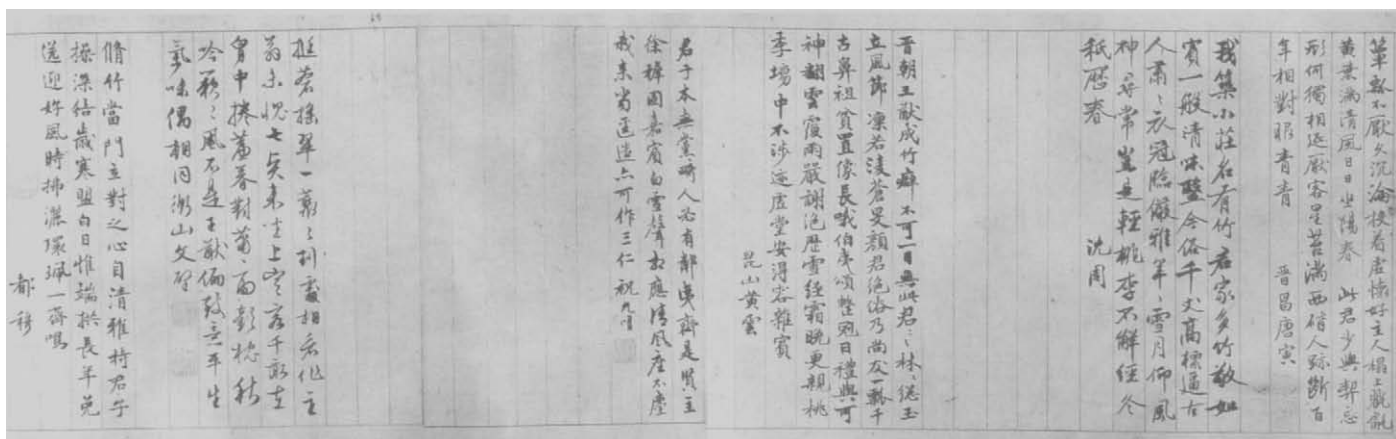 簞瓢不厭久沉淪投着虛懷好主人榻上氍毹
黃葉滿清風日日坐陽春　此君少與契忘
形何獨相延厭客星苔滿西碕人跡斷百
年相對眼青青　晉昌唐寅
我集小莊名有竹君家多竹敬如
賓一般清味鑒今俗千丈高標逼古
人肅〻衣冠臨儼雅年〻雪月仰風
神尋常豈是輕桃李不解經冬
秖歷春　沈周
晉朝王猷成竹癖不可一日無此君〻林〻總玉
立風節凜若淩蒼旻顏君絕俗乃尚友一
古鼻祖貧置像長哦伯夷頌整冠日禮與可
神翻雲覆雨嚴謝絕歷雪經霜晚更親桃
李塲中不涉迹虛堂安得容雜賓
崑山黃雲
君子本無黨斯人必有鄰免齋是賢主
徐稺固嘉賓白雪聲相應清風座不塵
我來嘗逕造亦可作三仁　祝允明
挺蒼操翠一叢〻封戛相看作主
翁未愧七賢來坐上寧容千畝在
胷中捲簾春對蕭〻雨彭枕秋
吟颯〻風不是王猷偏致意平生
氣味偶相同衡山文壁
脩竹當門立對之心自清雅持君子
操深結歲寒盟白日惟端拱長年免
送迎好風時拂灑環珮一齊鳴
都穆